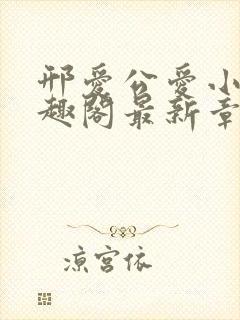 邢爱公爱小
趣阁最新章
凉宫依